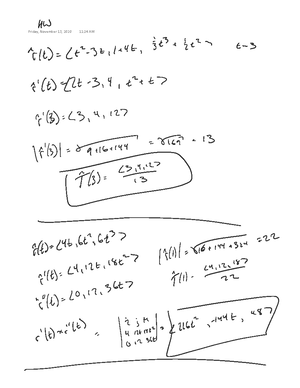 HW
Friday, November 13, 2020 11:04 AM
r⃗(t) = ⟨t²-3t, 1+4t, ⅓t³ + ½t²⟩ t=3
r⃗'(t) = ⟨2t-3, 4, t²+t⟩
r⃗'(3) = ⟨3, 4, 12⟩
|r⃗'(3)| = √9+16+144 = √169 = 13
T⃗(3) = ⟨3,4,12⟩/13
r⃗(t) = ⟨4t, 6t², 6t³⟩
r⃗'(t) = ⟨4, 12t, 18t²⟩ |r⃗'(1)| = √16+144+324 = 22
r⃗"(t) = ⟨0, 12, 36t⟩ T⃗(1) = ⟨4,12,18⟩/22
r⃗'(t) × r⃗"(t) = |i j k; 4 12t 18t²; 0 12 36t| = ⟨216t², -144t, 48⟩